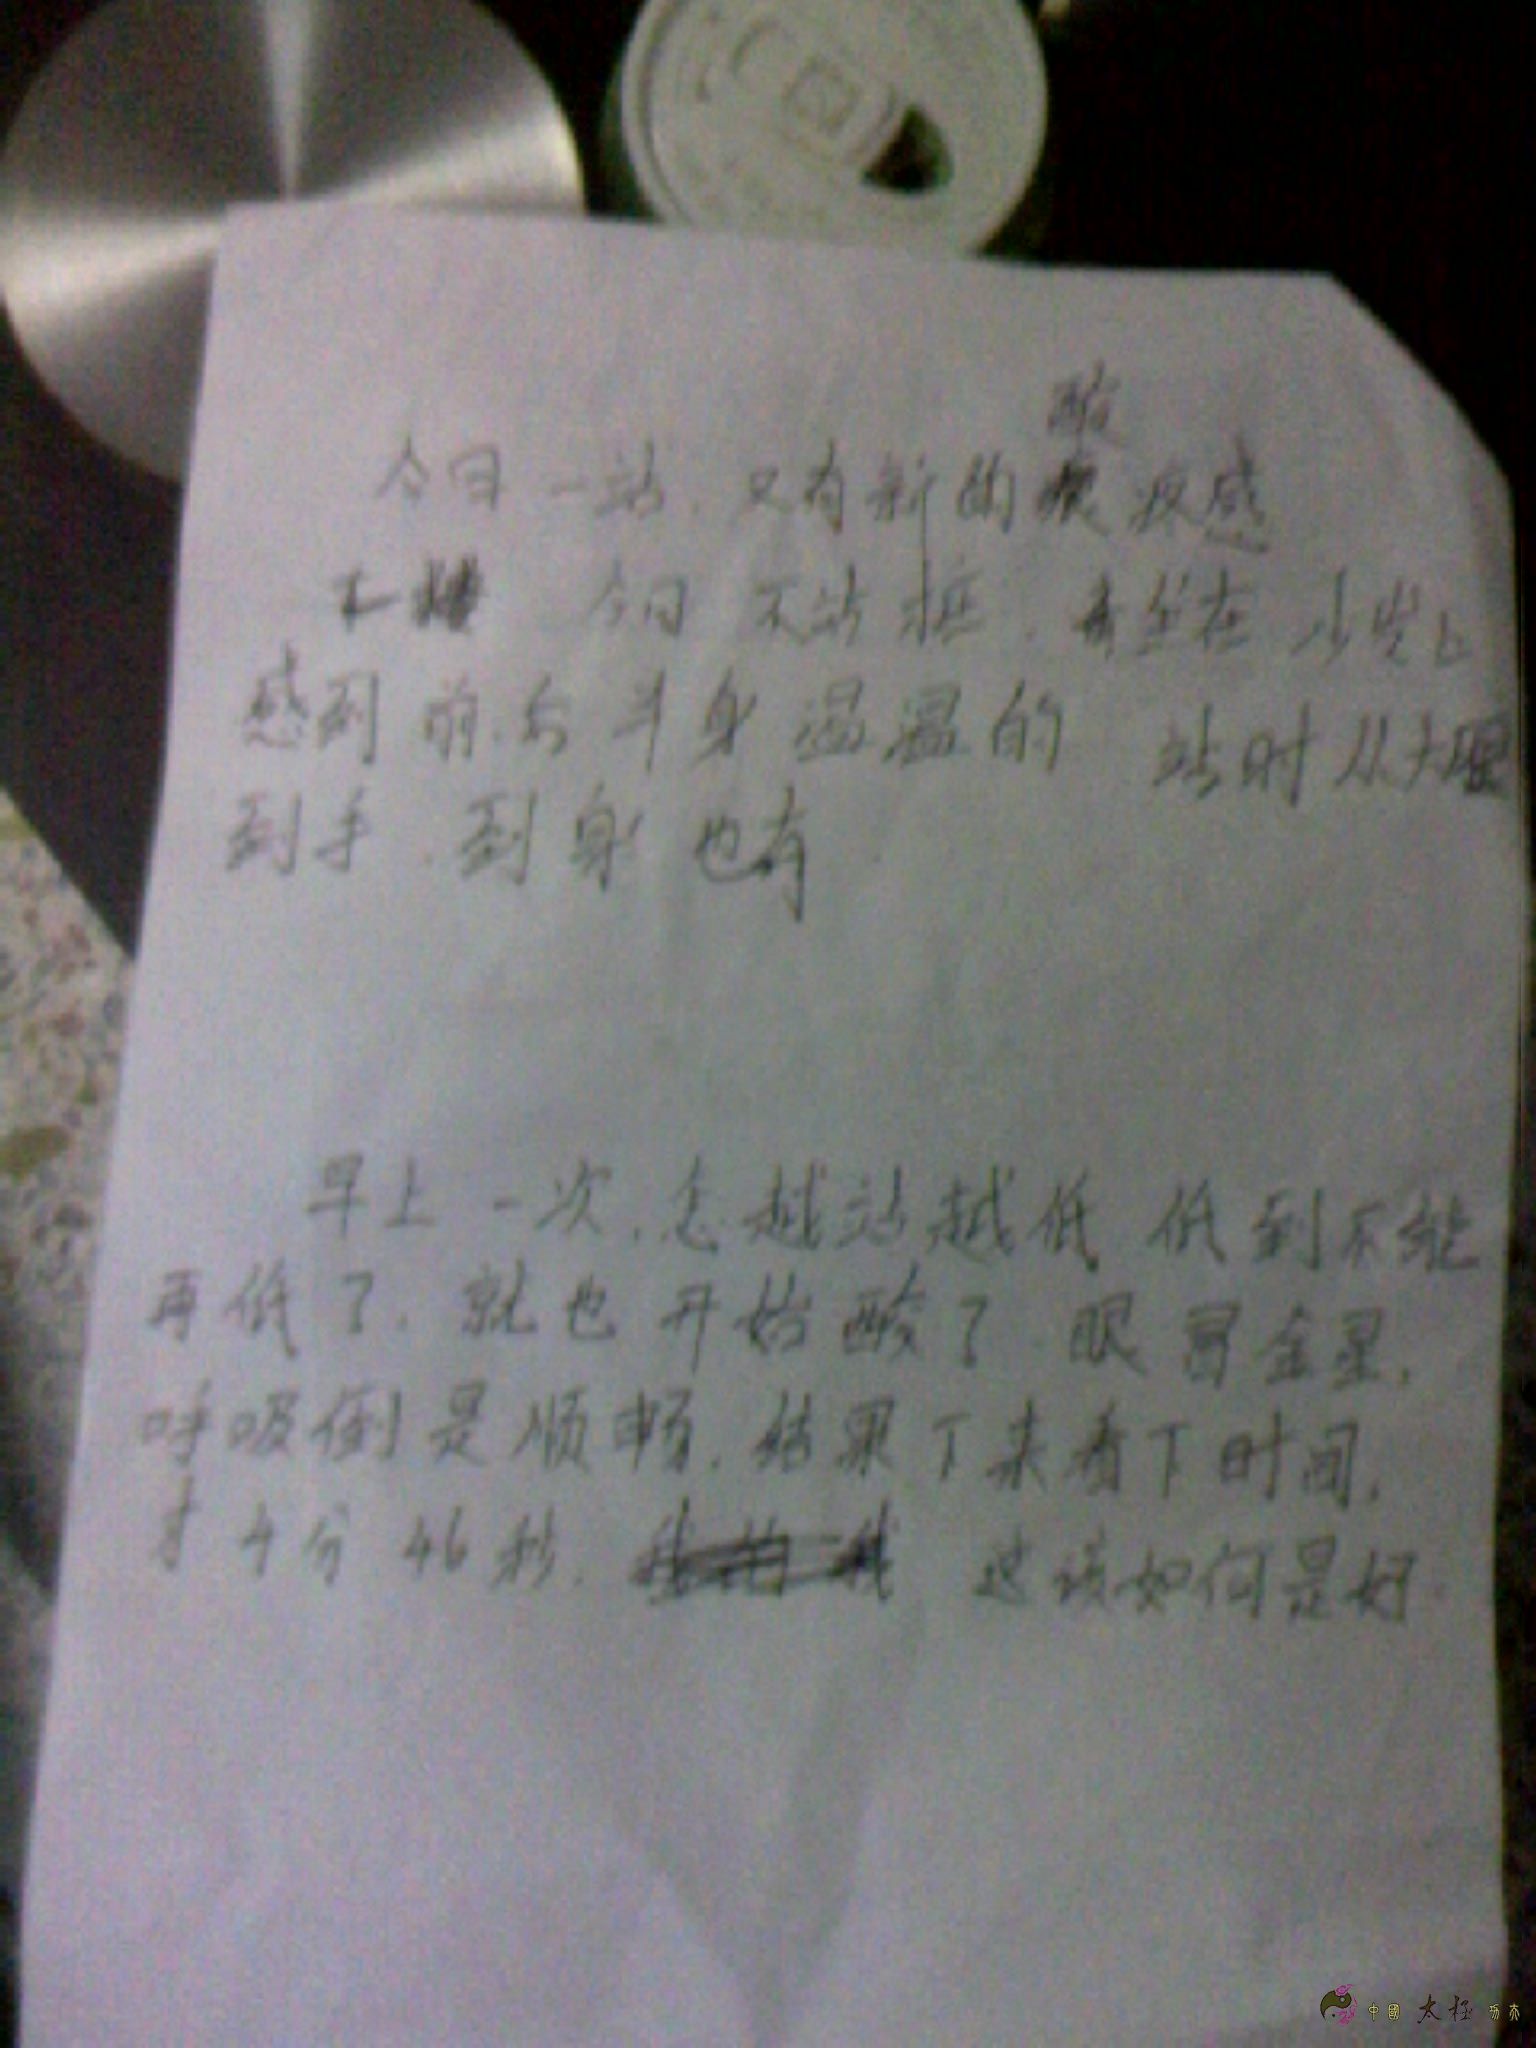 酸
今日一站．又有新的 疼感
今日 不站桩．坐在 沙发上
感到前．后半身温温的 站时从大腿
到手．到身也有．
早上一次．怎越站越低 低到不能
再低了．就也开始酸了．眼冒金星．
呼吸倒是顺畅．结果下来看下时间．
才4分46秒． 这该如何是好．
中國 太極